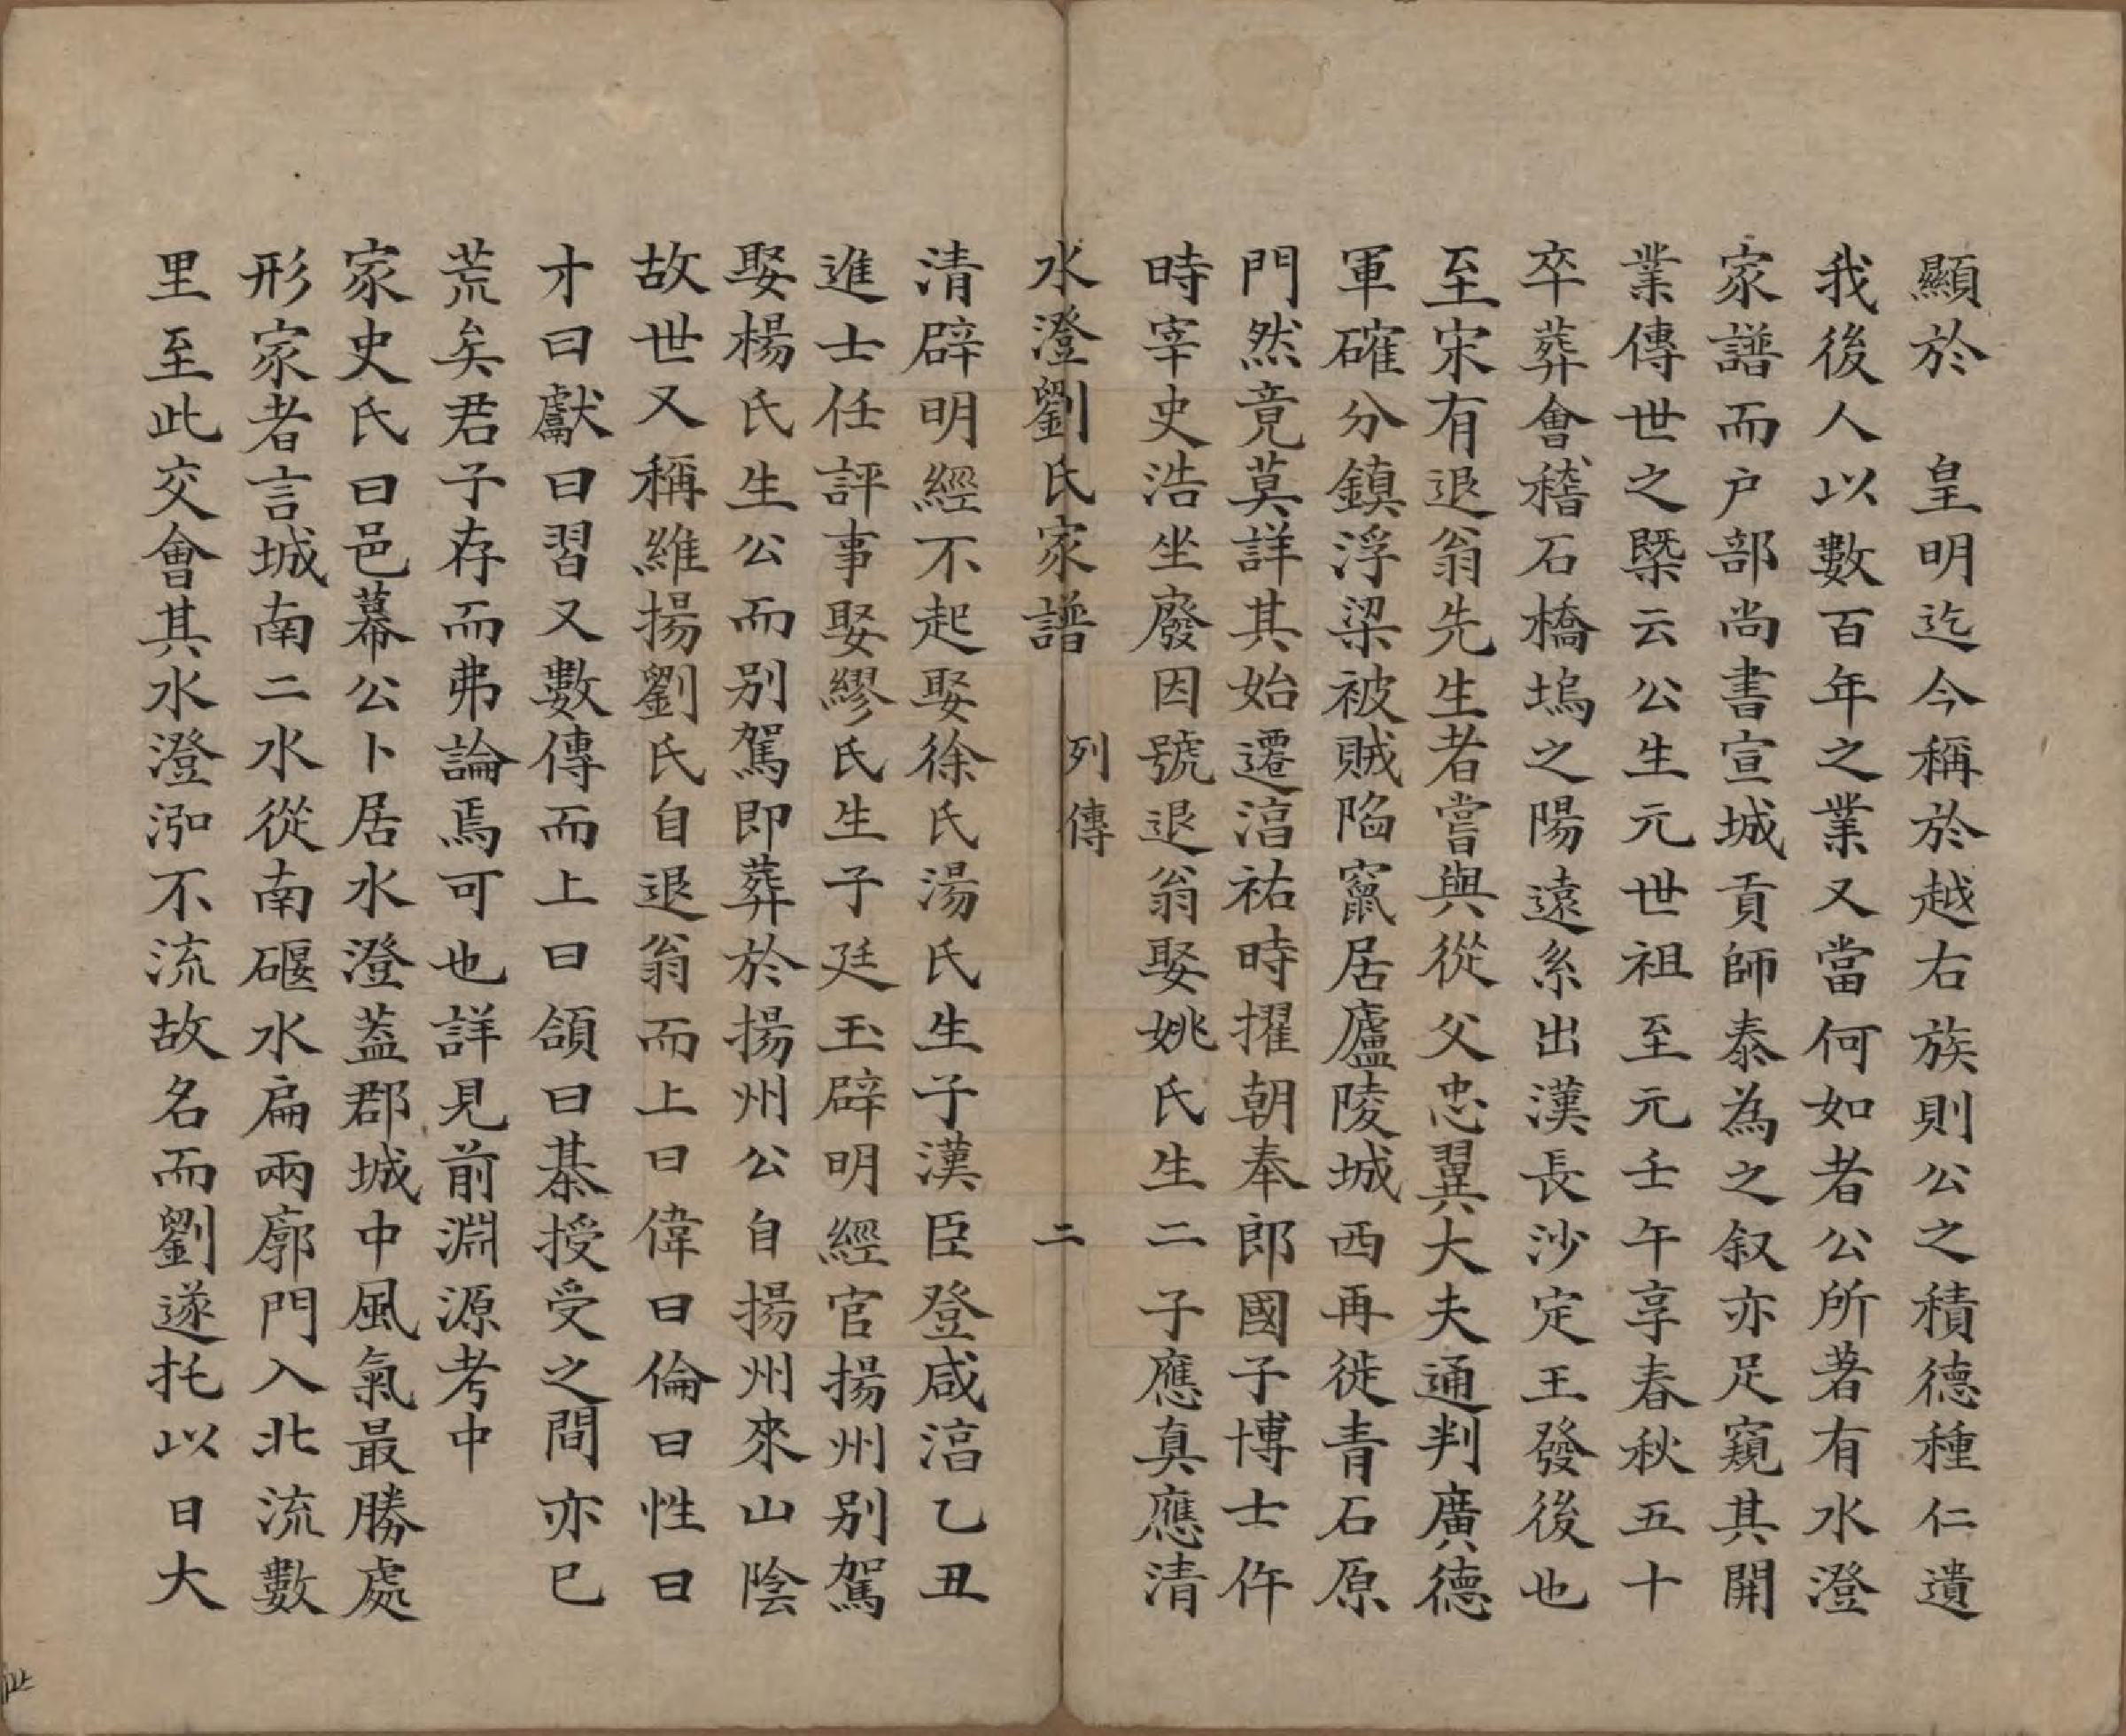 顯於　皇明迄今稱於越右族則公之積德種仁遺
我後人以數百年之業又當何如者公所著有水澄
家譜而户部尚書宣城貢師泰為之叙亦足窺其開
業傳世之槩云公生元世祖至元壬午享春秋五十
卒葬會稽石橋塢之陽遠系出漢長沙定王發後也
至宋有退翁先生者嘗與從父忠翼大夫通判廣德
軍確分鎮浮梁被賊陷竄居廬陵城西再徙青石原
門然竟莫詳其始遷湻祐時擢朝奉郎國子博士仵
時宰史浩坐廢因號退翁娶姚氏生二子應真應清
水澄劉氏家譜　列傳　二
清辟明經不起娶徐氏湯氏生子漢臣登咸湻乙丑
進士任評事娶繆氏生子廷玉辟明經官揚州别駕
娶楊氏生公而别駕即葬於揚州公自揚州來山陰
故世又稱維揚劉氏自退翁而上曰偉曰倫曰性曰
才曰獻曰習又數傳而上曰頜曰綦授受之間亦已
荒矣君子存而弗論焉可也詳見前淵源考中
家史氏曰邑幕公卜居水澄葢郡城中風氣最勝處
形家者言城南二水從南堰水扁兩廓門入北流數
里至此交會其水澄泓不流故名而劉遂托以日大